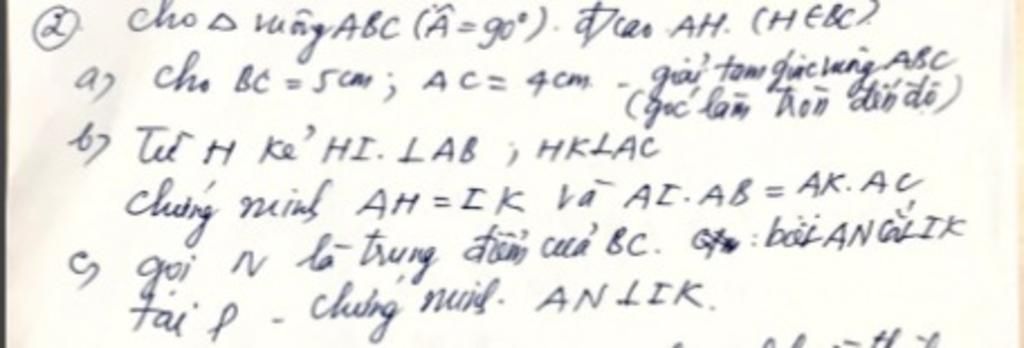 ② Cho △ vuông ABC (Â = 90°). Đ/cao AH. (H ∈ BC)
a) Cho BC = 5cm ; AC = 4cm - giải tam giác vuông ABC
(góc làm tròn đến độ)
b) Từ H kẻ HI ⊥ AB ; HK ⊥ AC
chứng minh AH = IK và AI.AB = AK.AC
c) gọi N là trung điểm của BC. AN cắt IK
tại P - chứng minh. AN ⊥ IK.